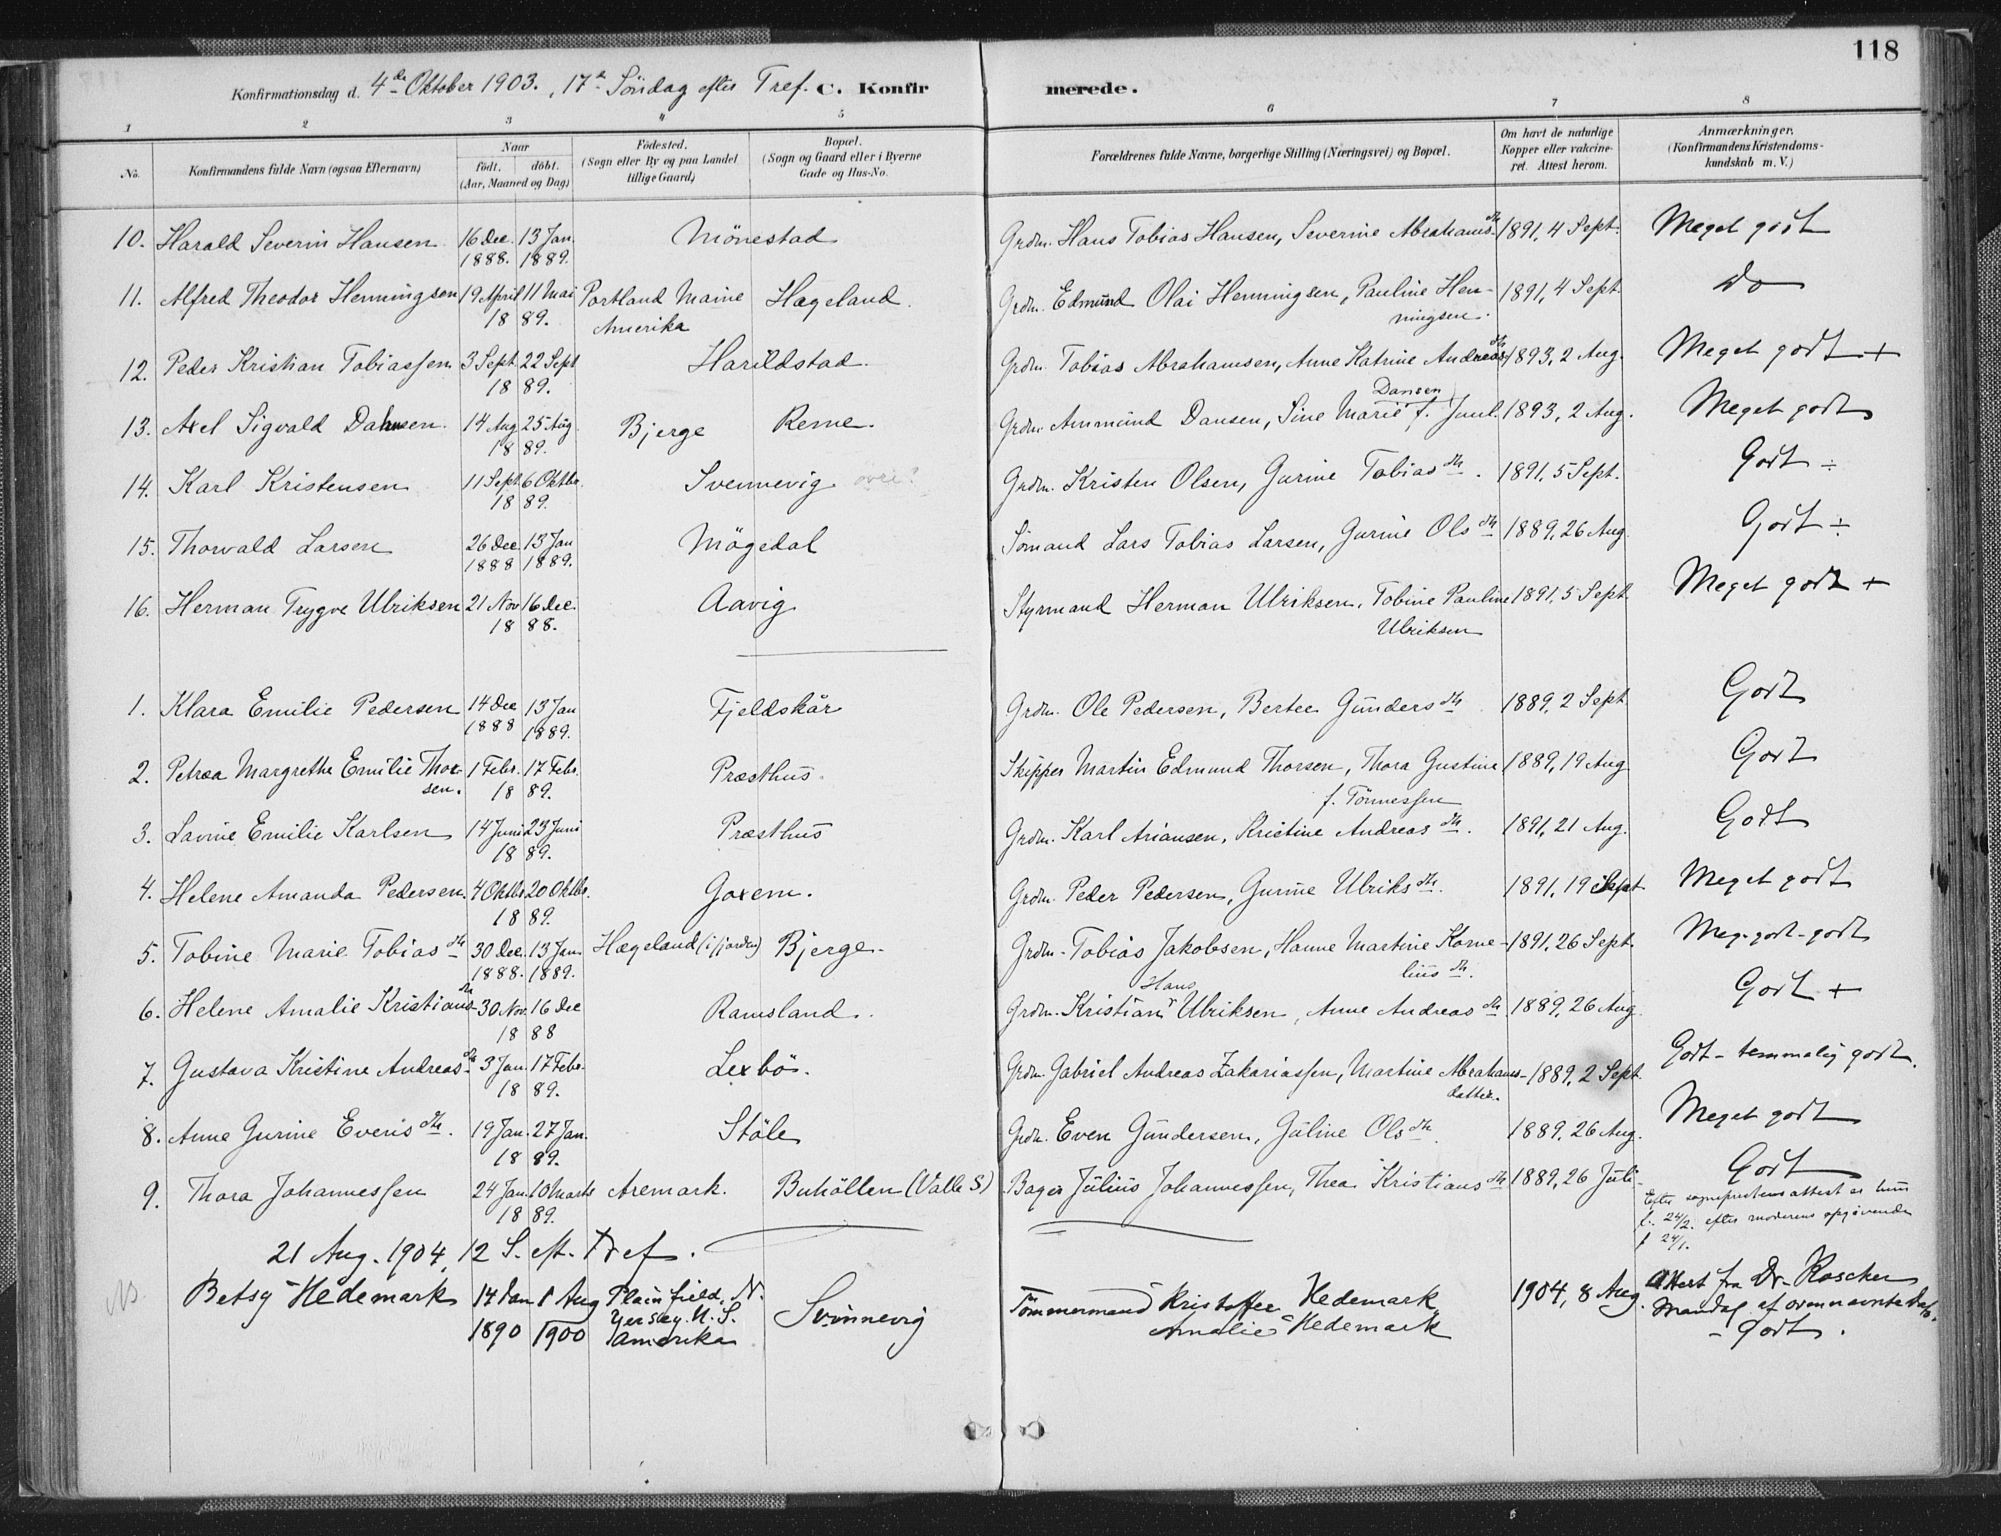 118
Konfirmationsdag d. 4de Oktober 1903., 17de Søndag efter Tref. C. Konfirmerede.
1 2 3 4 5 6 7 8
No. Konfirmandens fulde Navn (ogsaa Efternavn) Naar født. døbt. (Aar, Maaned og Dag) Fødested. (Sogn eller By og paa Landet tillige Gaard) Bopæl. (Sogn og Gaard eller i Byerne Gade og Hus-No. Forældrenes fulde Navne, borgerlige Stilling (Næringsvei) og Bopæl. Om havt de naturlige Kopper eller vakcineret. Attest herom. Anmærkninger. (Konfirmandens Kristendomskundskab m. V.)
10. Harald Severin Hansen 16 Dec. 1888. 13 Jan. 1889. Mönestad Grdm. Hans Tobias Hansen, Severine Abrahamsdtr 1891, 4 Sept. Meget godt
11. Alfred Theodor Henningsen 19 April 11 Mai 1889. Portland Maine Amerika Hægeland. Grdm. Edmund Olai Henningsen, Pauline Henningsen. 1891, 4 Sept. Do
12. Peder Kristian Tobiassen 3 Sept. 22 Sept 1889. Harildstad. Grdm. Tobias Abrahamsen, Anne Katrine Andreasdtr 1893, 2 Aug. Meget godt +
13. Axel Sigvald Dansen. 14 Aug 25 Aug 1889. Bjerge Reme. Grdm. Ammund Dansen, Sine Marie Dansen f. Juul. 1893, 2 Aug. Meget godt
14. Karl Kristensen 11 Sept. 6 Oktbr. 1889. Svennevig ovre? Grdm. Kristen Olsen, Gurine Tobiasdtr. 1891, 5 Sept. Godt ÷
15. Thorvald Larsen 26 Dec. 1888 13 Jan 1889. Mögedal Sömand Lars Tobias Larsen, Gurine Olsdtr 1889, 26 Aug. Godt ÷
16. Herman Trygve Ulriksen 21 Nov 16 Dec. 1888. Aavig Styrmand Herman Ulriksen, Tobine Pauline Ulriksen 1891, 5 Sept. Meget godt +
1. Klara Emilie Pedersen 14 Dec 1888 13 Jan 1889. Fjeldskår Grdm. Ole Pedersen, Bertee Gundersdtr 1889, 2 Sept. Godt
2. Petrea Margrethe Emilie Thorsen. 1 Febr. 17 Febr. 1889. Præsthus. Skipper Martin Edmund Thorsen, Thora Gustine f. Tönnessen 1889, 19 Aug. Godt
3. Lavine Emilie Karlsen 14 Juni 23 Juni 1889. Præsthus Grdm. Karl Ariansen, Kristine Andreasdtr. 1891, 21 Aug. Godt
4. Helene Amanda Pedersen. 4 Oktbr. 20 Oktbr. 1889. Goxem. Grdm. Peder Pedersen, Gurine Ulriksdtr. 1891, 19 Sept Meget godt
5. Tobine Marie Tobiasdtr 30 Dec. 1888. 13 Jan. 1889. Hægeland (i fjorden) Bjerge. Grdm. Tobias Jakobsen, Hanne Martine Korneliusdtr. 1891, 26 Sept. Meg. godt - godt
6. Helene Amalie Kristiansdtr 30 Nov. 16 Dec 1888 Ramsland. Grdm. Kristian Hans Ulriksen, Anne Andreasdtr 1889, 26 Aug. Godt +
7. Gustava Kristine Andreasdtr 3 Jan. 17 Febr. 1889. Lexbö. Grdm. Gabriel Andreas Zakariassen, Martine Abrahamsdatter. 1889, 2 Sept. Godt - temmelig godt.
8. Anne Gurine Evensdtr. 19 Jan. 27 Jan. 1889. Ståle Grdm. Even Gundersen, Juline Olsdtr. 1889, 26 Aug. Meget godt
9. Thora Johannessen 24 Jan. 10 Marts 1889. Aremark. Buhöllen (Valle S) Bager Julius Johannessen, Thea Kristiansdtr 1889, 26 Juli Godt
Efter sogneprestens attest er hun
f. 24/2. efter moderens opgivende
f 24/1.
21 Aug. 1904, 12 S. eft. Tref.
Betsy Hedemark 14 Jan 1890 8 Aug 1900 Plainfield, N. Yersey. U. S. Amerika Svinnevig Tömmermand Kristoffer Hedemark Amalie Hedemark 1904, 8 Aug. Attest fra Dr. Roscher Mandal af ovennævnte Dato. - Godt.